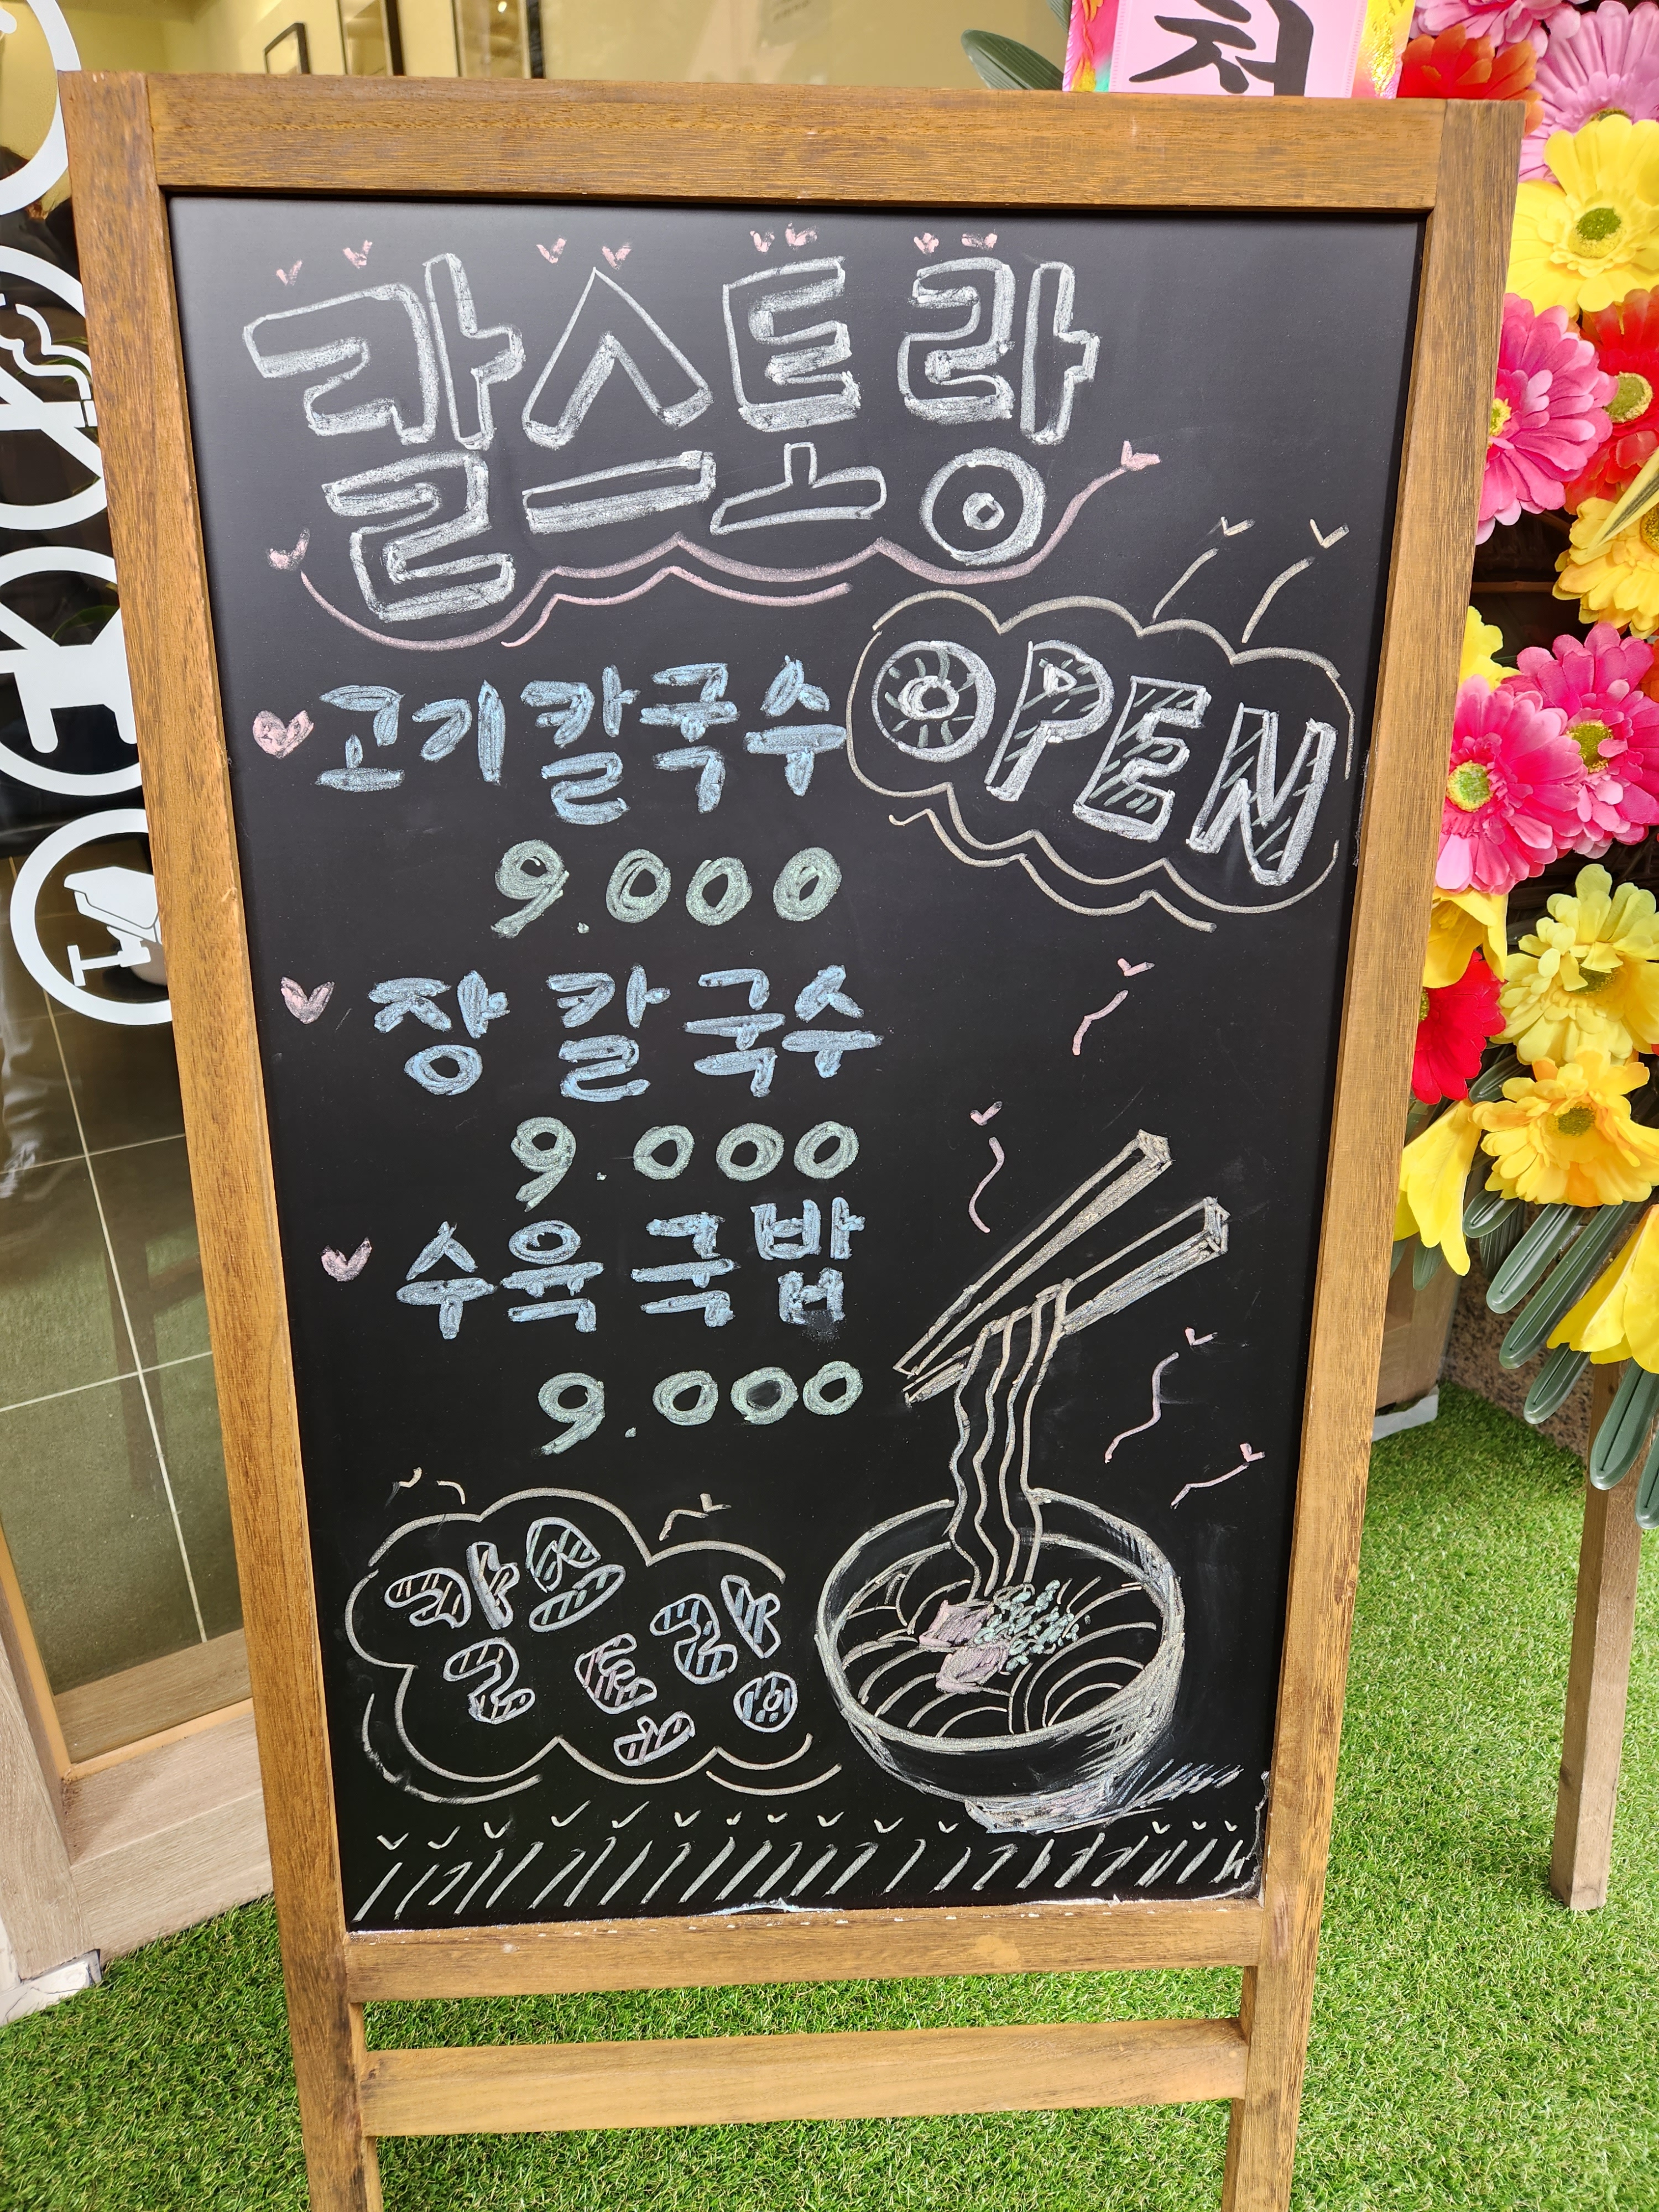 칼스토랑
OPEN
고기칼국수
9.000
장 칼국수
9.000
수육국밥
9.000
칼스토랑